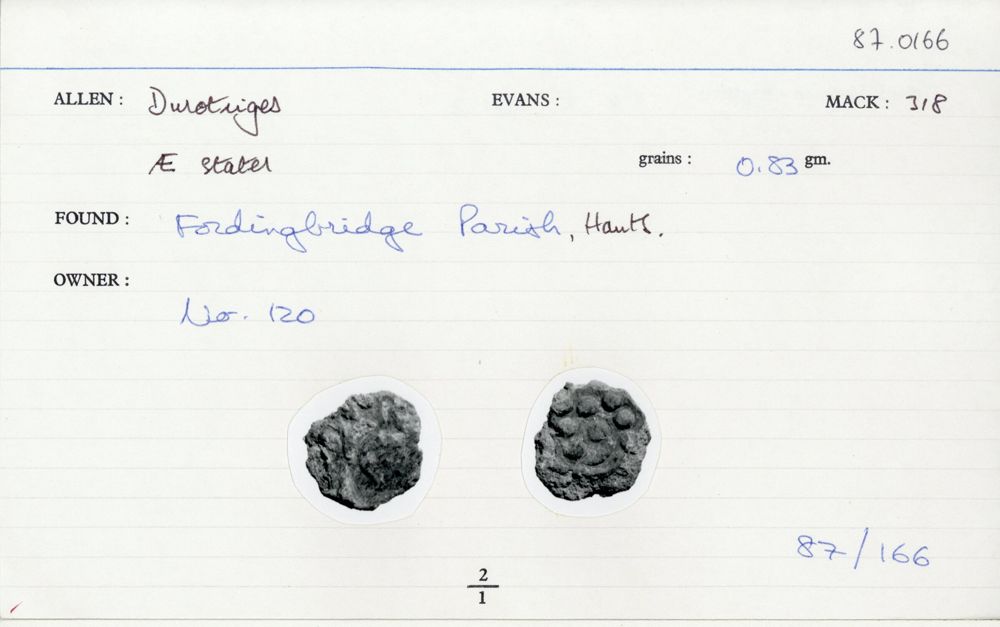 87.0166
ALLEN : Durotriges EVANS : MACK : 318
Æ stater grains : 0.83 gm.
FOUND : Fordingbridge Parish, Hants.
OWNER :
No. 120
87/166
2
1